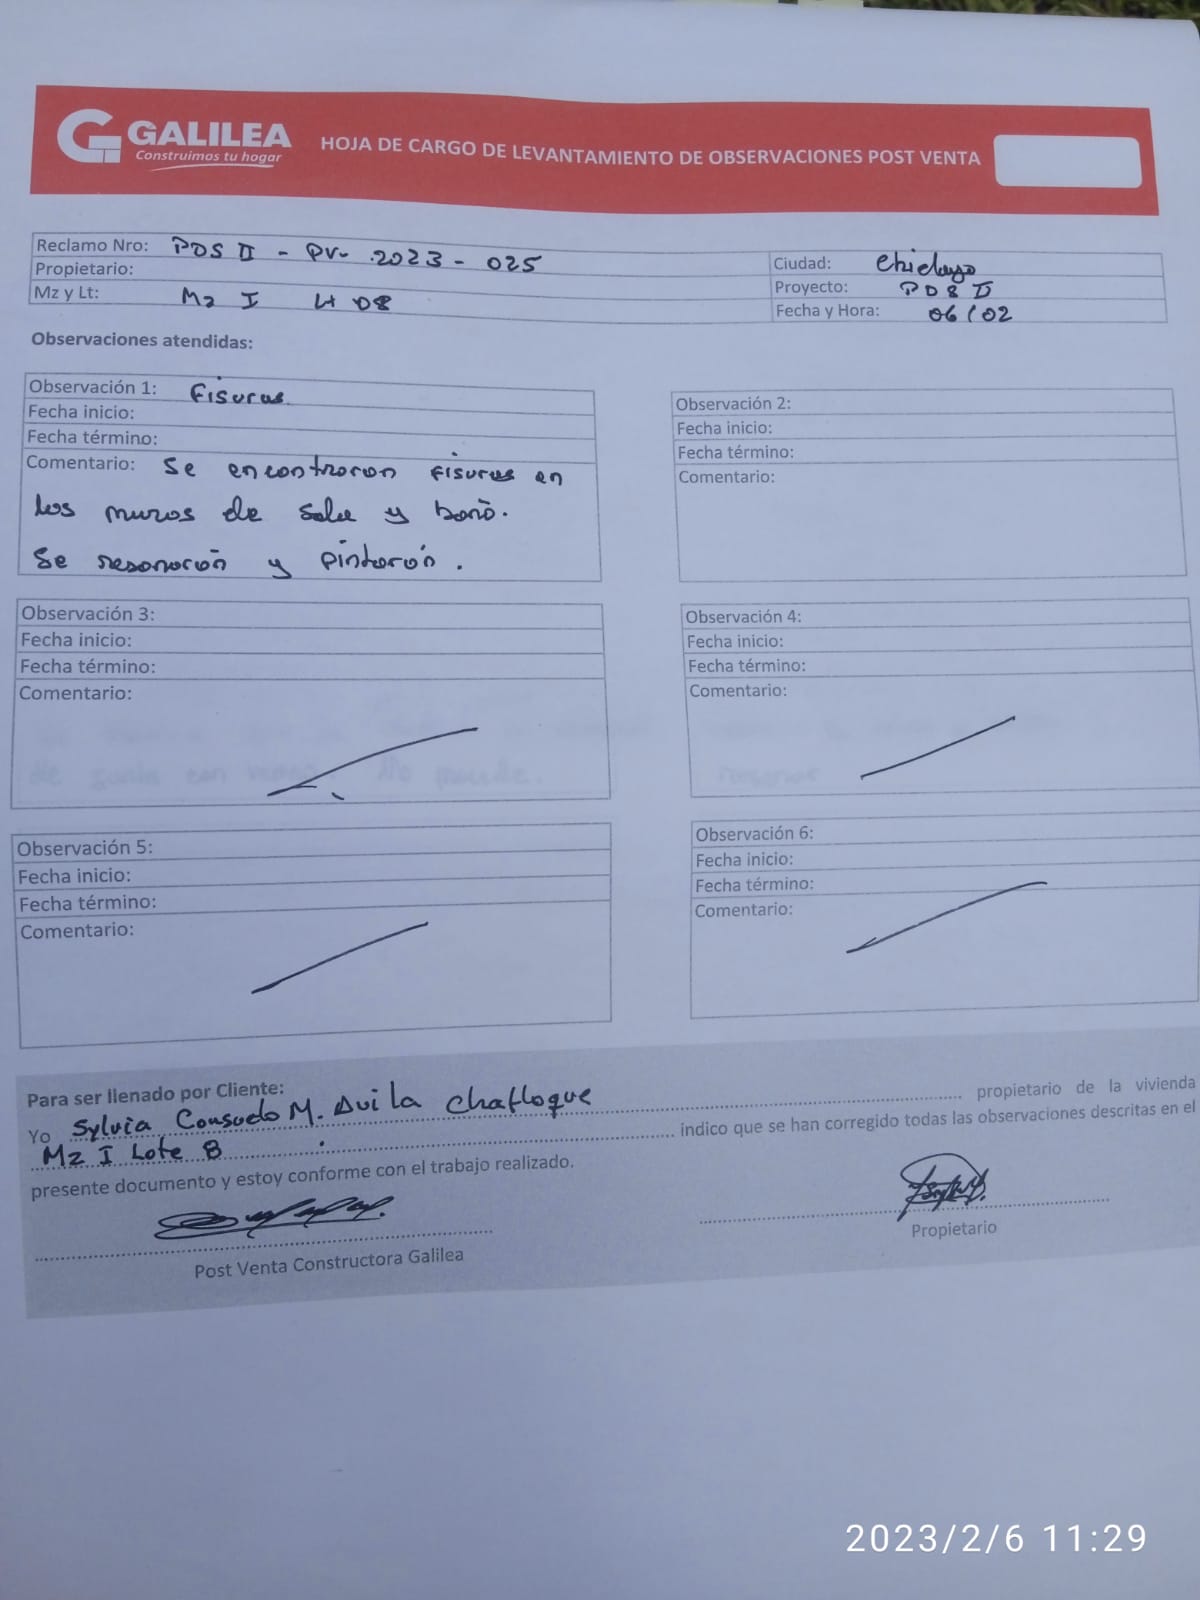 GALILEA
Construimos tu hogar
HOJA DE CARGO DE LEVANTAMIENTO DE OBSERVACIONES POST VENTA
Reclamo Nro: PDS II - PV- 2023 - 025
Propietario:
Mz y Lt: Mz I Lt 08
Ciudad: Chiclayo
Proyecto: PDS II
Fecha y Hora: 06/02
Observaciones atendidas:
Observación 1: Fisuras
Fecha inicio:
Fecha término:
Comentario: Se encontraron fisuras en
los muros de sala y baño.
Se resanarón y pintarón.
Observación 2:
Fecha inicio:
Fecha término:
Comentario:
Observación 3:
Fecha inicio:
Fecha término:
Comentario:
Observación 4:
Fecha inicio:
Fecha término:
Comentario:
Observación 5:
Fecha inicio:
Fecha término:
Comentario:
Observación 6:
Fecha inicio:
Fecha término:
Comentario:
Para ser llenado por Cliente:
Yo Sylvia Consuelo M. Avila Chafloque propietario de la vivienda
Mz I Lote 8 indico que se han corregido todas las observaciones descritas en el
presente documento y estoy conforme con el trabajo realizado.
Post Venta Constructora Galilea
Propietario
2023/2/6 11:29